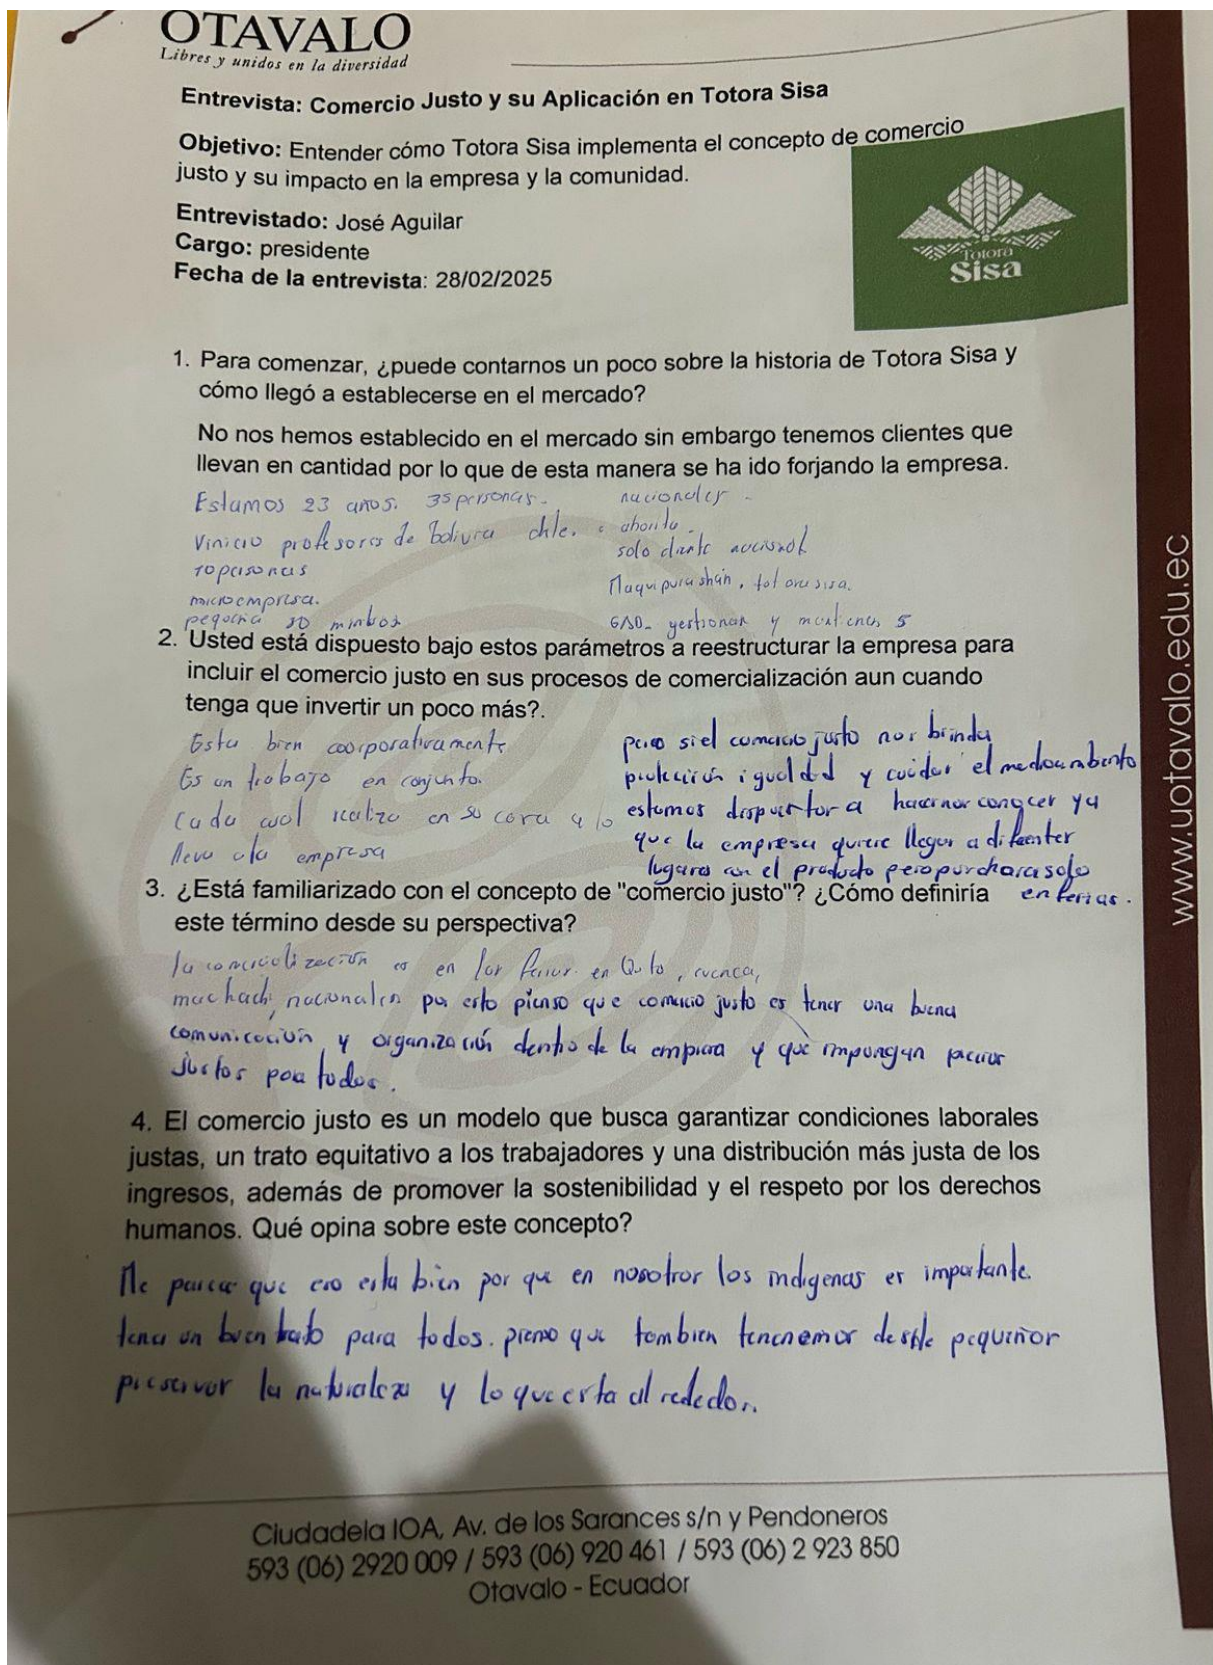 OTAVALO
Libres y unidos en la diversidad
Entrevista: Comercio Justo y su Aplicación en Totora Sisa
Objetivo: Entender cómo Totora Sisa implementa el concepto de comercio
justo y su impacto en la empresa y la comunidad.
Entrevistado: José Aguilar
Cargo: presidente
Fecha de la entrevista: 28/02/2025
Totora
Sisa
1. Para comenzar, ¿puede contarnos un poco sobre la historia de Totora Sisa y
cómo llegó a establecerse en el mercado?
No nos hemos establecido en el mercado sin embargo tenemos clientes que
llevan en cantidad por lo que de esta manera se ha ido forjando la empresa.
Estamos 23 años. 35 personas.
Vinicio profesores de Bolivia chile.
10 personas
microempresa.
pequeña 30
nacionales
ahorita
solo nacional
Maquipurashin, totora sisa.
GAD. gestionan y 5
2. Usted está dispuesto bajo estos parámetros a reestructurar la empresa para
incluir el comercio justo en sus procesos de comercialización aun cuando
tenga que invertir un poco más?.
Esta bien coorporativamente
Es un trabajo en conjunto.
Cada cual realiza en su casa y lo
lleva a la empresa
pero si el comercio justo nos brinda
protección igualdad y cuidar el medioambiento
estamos dispuestos a hacernos conocer ya
que la empresa quiere llegar a diferenter
lugares con el producto pero por ahora solo
en ferias.
3. ¿Está familiarizado con el concepto de "comercio justo"? ¿Cómo definiría
este término desde su perspectiva?
la comercialización es en las ferias en Quito, cuenca,
machachi, nacionales por esto pienso que comercio justo es tener una buena
comunicación y organización dentro de la empresa y que impongan precios
justos para todos.
4. El comercio justo es un modelo que busca garantizar condiciones laborales
justas, un trato equitativo a los trabajadores y una distribución más justa de los
ingresos, además de promover la sostenibilidad y el respeto por los derechos
humanos. Qué opina sobre este concepto?
Me parece que eso esta bien por que en nosotros los indigenas es importante.
tener un buen trato para todos. pienso que tambien tenenemos desde pequeños
preservar la naturaleza y lo que esta al rededor.
www.uotavalo.edu.ec
Ciudadela IOA, Av. de los Sarances s/n y Pendoneros
593 (06) 2920 009 / 593 (06) 920 461 / 593 (06) 2 923 850
Otavalo - Ecuador